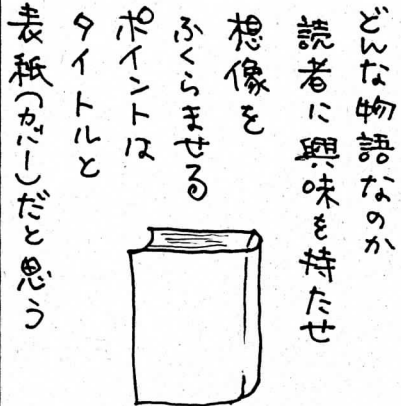 どんな物語なのか
読者に興味を持たせ
想像を
ふくらませる
ポイントは
タイトルと
表紙(カバー)だと思う